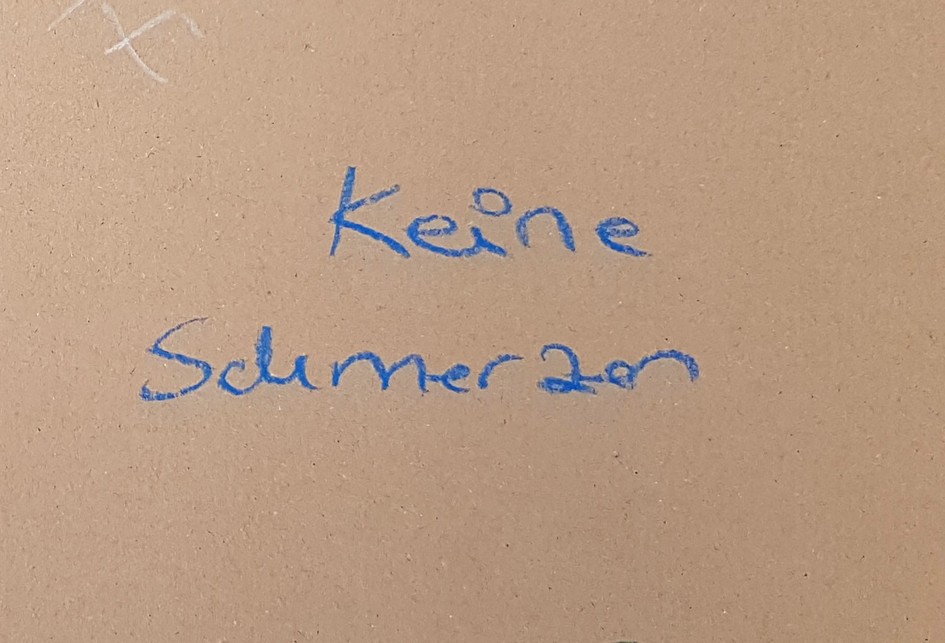 Keine
Schmerzen